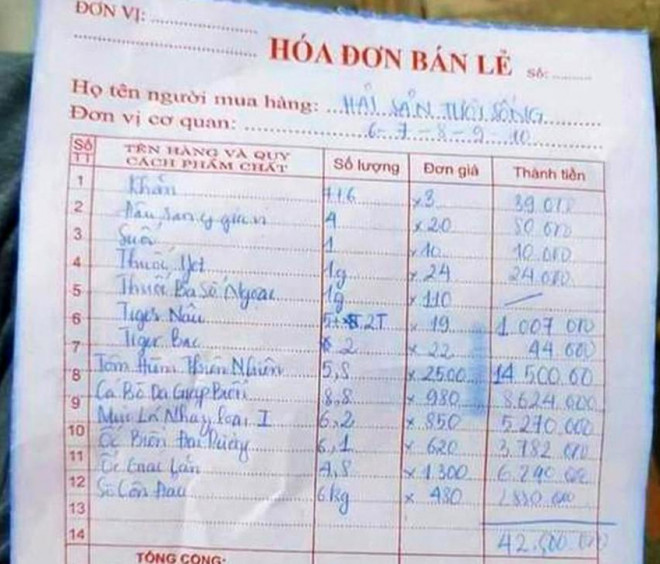 ĐƠN VỊ: ....................
HÓA ĐƠN BÁN LẺ Số: ........
Họ tên người mua hàng: HẢI SẢN TƯƠI SỐNG
Đơn vị cơ quan: 6-7-8-9-10
Số TT TÊN HÀNG VÀ QUY CÁCH PHẨM CHẤT Số lượng Đơn giá Thành tiền
1 Khăn 7+6 x3 39.000
2 4 x20 80.000
3 Suối 1 x10 10.000
4 Thuốc Jet 1g x24 24.000
5 Thuốc Ba Số Ngoại 1g x110
6 Tiger Nâu x 19 1.007.000
7 Tiger Bạc 2 x 22 44.000
8 Tôm Hùm Thiên Nhiên 5,8 x 2500 14.500.00
9 Cá Bò Da Giáp Biển 8,8 x 980 8.624.000
Mực Lá Nháy Loại I 6,2 x 850 5.270.000
10 Ốc Biển Đại Dương 6,1 x 620 3.782.000
11 Ốc Gai Lớn 4,8 x 1300 6.240.000
12 Sò Côn Đảo 6kg x 480 2.880.000
13
14 42.500.000
TỔNG CỘNG: